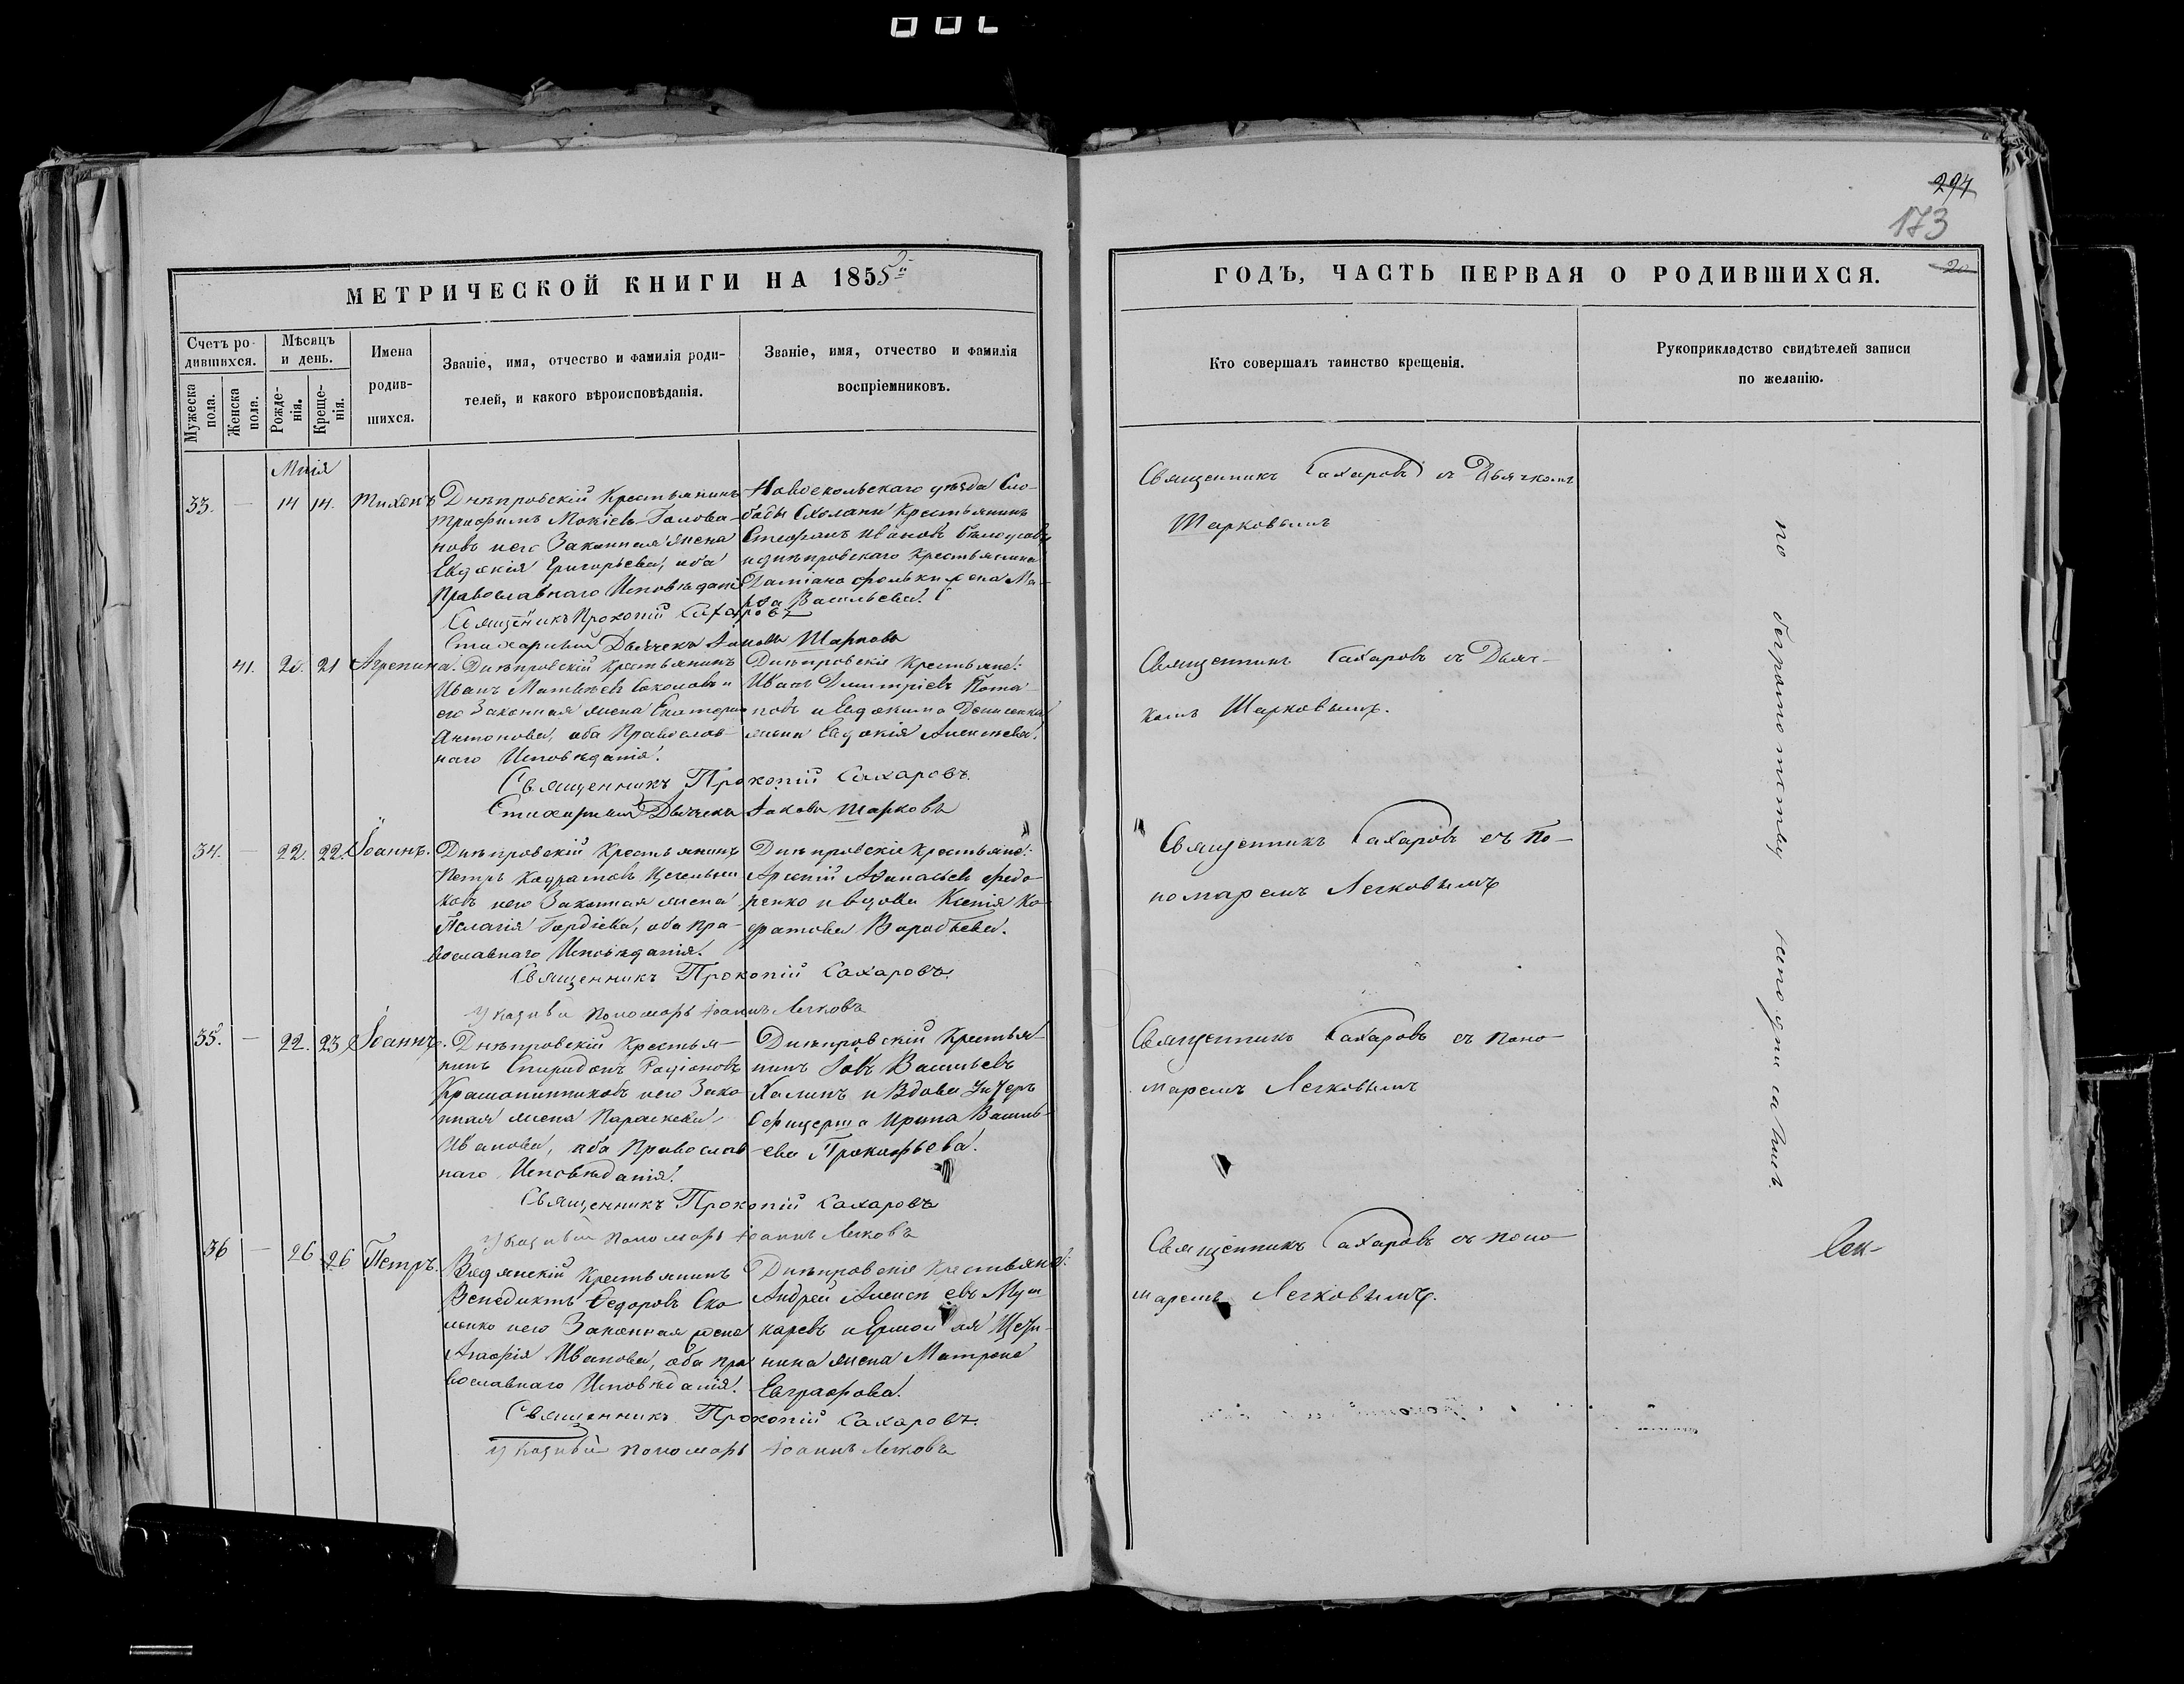 294
173
20
МЕТРИЧЕСКОЙ КНИГИ НА 1855й
ГОДЪ, ЧАСТЬ ПЕРВАЯ О РОДИВШИХСЯ.
Счетъ ро-
дившихся.
Мужеска пола.
Женска пола.
Мѣсяцъ
и день.
Рожде-
нія.
Креще-
нія.
Имена
родив-
шихся.
Званіе, имя, отчество и фамилія роди-
телей, и какого вѣроисповѣданія.
Званіе, имя, отчество и фамилія
воспріемниковъ.
Кто совершалъ таинство крещенія.
Рукоприкладство свидѣтелей записи
по желанію.
33. — 14 14. Тихонъ
Днѣпровскій Крестьянинъ
Трофимъ Мокіевъ Голова-
новъ и его Законная жена
Евдокія Григорьева, оба
Православнаго Исповѣданія
Священникъ Прокопій Сахаровъ
Стихарный Дьячекъ Іаковъ Шарковъ
Новооскольскаго уѣзда Сло-
боды Крестьянинъ
Стефанъ Ивановъ
и днѣпровскаго Крестьянина
Даміана жена Ма-
рфа Васильева.
Священникъ Сахаровъ съ Дьячкомъ
Шарковымъ
41. 20. 21 Агрепина.
Днѣпровскій Крестьянинъ
Иванъ Матвѣевъ Соколовъ и
его Законная жена Екатерина
Антонова, оба Православ-
наго Исповѣданія.
Священникъ Прокопій Сахаровъ
Стихарный Дьячекъ Іаковъ Шарковъ
Днѣпровскіе Крестьяне:
Иванъ Димитріевъ Пота-
повъ и Евдокима Денисенка
жена Евдокія Алексѣева.
Священникъ Сахаровъ съ Дьяч-
комъ Шарковымъ.
34. — 22. 22. Іоаннъ.
Днѣпровскій Крестьянинъ
Петръ Кодратовъ
ковъ и его Законная жена
Пелагія Гордіева, оба Пра-
вославнаго Исповѣданія.
Священникъ Прокопій Сахаровъ.
Указный Пономарь Іоаннъ Легковъ
Днѣпровскіе Крестьяне:
Арсеній Аѳанасьевъ Федо-
ренко и вдова Ксенія Ко-
дратова Воробьева.
Священникъ Сахаровъ съ По-
номаремъ Легковымъ
35. — 22. 23 Іоаннъ.
Днѣпровскій Крестья-
нинъ Спиридонъ Родіоновъ
Крашенинниковъ и его Зако-
нная жена Параскева
Иванова, оба Православ-
наго Исповѣданія.
Священникъ Прокопій Сахаровъ
Указный Пономарь Іоаннъ Легковъ
Днѣпровскій Крестья-
нинъ Іовъ Васильевъ
Халинъ и Вдова Унтеръ
Офицерша Ирина Василь-
ева Прокофьева.
Священникъ Сахаровъ съ Поно-
маремъ Легковымъ
36 — 26 26 Петръ.
Крестьянинъ
Венедиктъ Федоровъ Ско-
и его Законная жена
Агафія Иванова, оба Пра
вославнаго Исповѣданія.
Священникъ Прокопій Сахаровъ.
Указный Пономарь Іоаннъ Легковъ
Днѣпровскіе Крестьяне:
Андрей
каревъ и
нина жена Матрена
Евграфова.
Священникъ Сахаровъ съ Поно-
маремъ Легковымъ.
по